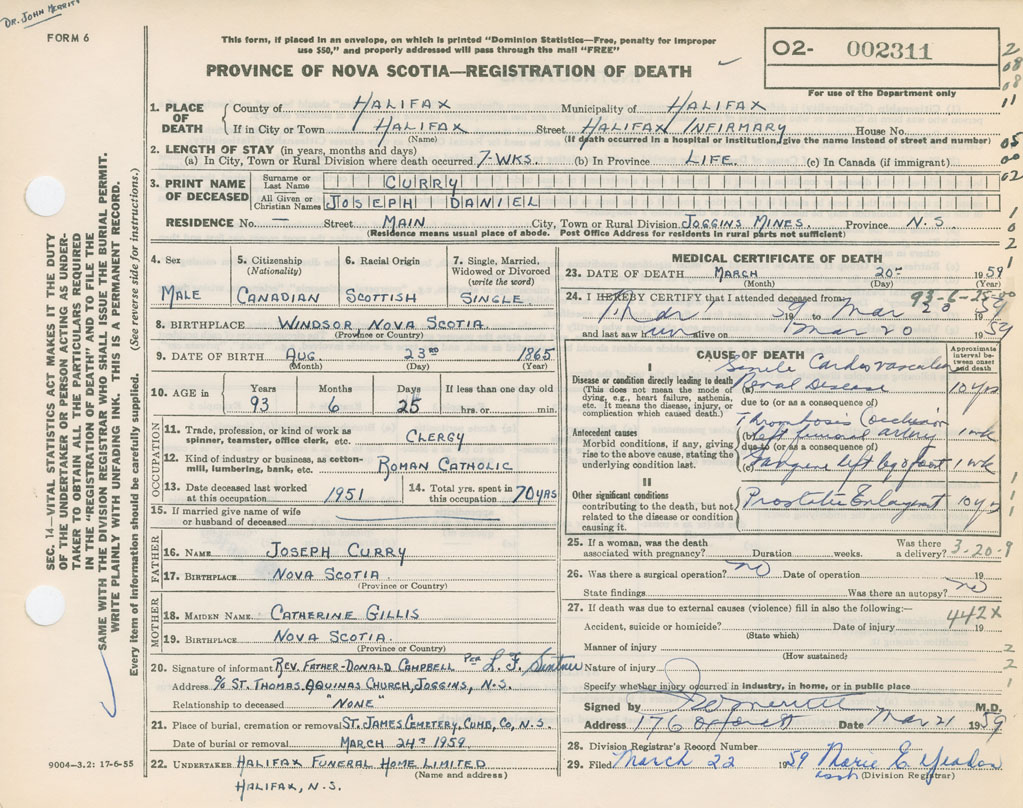 DR. JOHN MERRITT
FORM 6
This form, if placed in an envelope, on which is printed "Dominion Statistics—Free, penalty for improper
use $50," and properly addressed will pass through the mail "FREE"
PROVINCE OF NOVA SCOTIA—REGISTRATION OF DEATH
02- 002311
For use of the Department only
2
08
08
11
05
00
02
1
0
2
1
SEC. 14—VITAL STATISTICS ACT MAKES IT THE DUTY
OF THE UNDERTAKER OR PERSON ACTING AS UNDER-
TAKER TO OBTAIN ALL THE PARTICULARS REQUIRED
IN THE "REGISTRATION OF DEATH" AND TO FILE THE
SAME WITH THE DIVISION REGISTRAR WHO SHALL ISSUE THE BURIAL PERMIT.
WRITE PLAINLY WITH UNFADING INK. THIS IS A PERMANENT RECORD.
Every item of information should be carefully supplied. (See reverse side for instructions.)
1. PLACE OF DEATH County of HALIFAX Municipality of HALIFAX
If in City or Town HALIFAX Street HALIFAX INFIRMARY House No.
(Name) (If death occurred in a hospital or institution, give the name instead of street and number)
2. LENGTH OF STAY (in years, months and days)
(a) In City, Town or Rural Division where death occurred 7-WKS. (b) In Province LIFE. (c) In Canada (if immigrant)
3. PRINT NAME OF DECEASED Surname or Last Name CURRY
All Given or Christian Names JOSEPH DANIEL
RESIDENCE No. — Street MAIN City, Town or Rural Division JOGGINS MINES. Province N.S
(Residence means usual place of abode. Post Office Address for residents in rural parts not sufficient)
4. Sex MALE
5. Citizenship (Nationality) CANADIAN
6. Racial Origin SCOTTISH
7. Single, Married, Widowed or Divorced (write the word) SINGLE
8. BIRTHPLACE WINDSOR, NOVA SCOTIA.
(Province or Country)
9. DATE OF BIRTH AUG. 23RD 1865
(Month) (Day) (Year)
10. AGE in Years 93 Months 6 Days 25 If less than one day old hrs. or min.
OCCUPATION
11. Trade, profession, or kind of work as spinner, teamster, office clerk, etc. CLERGY
12. Kind of industry or business, as cotton-mill, lumbering, bank, etc. ROMAN CATHOLIC
13. Date deceased last worked at this occupation 1951
14. Total yrs. spent in this occupation 70 YRS
15. If married give name of wife or husband of deceased
FATHER
16. NAME JOSEPH CURRY
17. BIRTHPLACE NOVA SCOTIA
(Province or Country)
MOTHER
18. MAIDEN NAME. CATHERINE GILLIS
19. BIRTHPLACE NOVA SCOTIA.
(Province or Country)
20. Signature of informant REV. FATHER-DONALD CAMPBELL PER L. F.
Address C/O ST. THOMAS AQUINAS CHURCH, JOGGINS, N.S.
Relationship to deceased "NONE"
21. Place of burial, cremation or removal ST. JAMES CEMETERY, CUMB, CO, N.S.
Date of burial or removal MARCH 24TH 1959.
22. UNDERTAKER HALIFAX FUNERAL HOME LIMITED
(Name and address)
HALIFAX, N.S.
9004—3.2: 17-6-55
MEDICAL CERTIFICATE OF DEATH
23. DATE OF DEATH MARCH 20TH 1959
(Month) (Day) (Year)
93-6-25-00
24. I HEREBY CERTIFY that I attended deceased from Mar 1 59 to Mar 20 1959
and last saw him alive on Mar 20 1959
CAUSE OF DEATH
Approximate interval between onset and death
I
Disease or condition directly leading to death
(This does not mean the mode of dying, e.g., heart failure, asthenia, etc. It means the disease, injury, or complication which caused death.)
Senile Cardiovascular
(a) Renal Disease 10 yrs
due to (or as a consequence of)
Antecedent causes
Morbid conditions, if any, giving rise to the above cause, stating the underlying condition last.
Thrombosis Occlusion
(b) left femoral artery 1 wk
due to (or as a consequence of)
(c) Gangrene left leg & foot 1 wk
II
Other significant conditions
contributing to the death, but not related to the disease or condition causing it.
Prostatic Enlargement 10 yrs
25. If a woman, was the death associated with pregnancy? Duration weeks. Was there a delivery? 3-20-9
26. Was there a surgical operation? no Date of operation 19
State findings Was there an autopsy? no
27. If death was due to external causes (violence) fill in also the following:— 442X
Accident, suicide or homicide? Date of injury 19
(State which)
Manner of injury
(How sustained)
Nature of injury
Specify whether injury occurred in industry, in home, or in public place
Signed by Merritt M.D.
Address 176 Date Mar 21 1959
28. Division Registrar's Record Number
29. Filed March 22 1959 Marie E.
(Division Registrar)